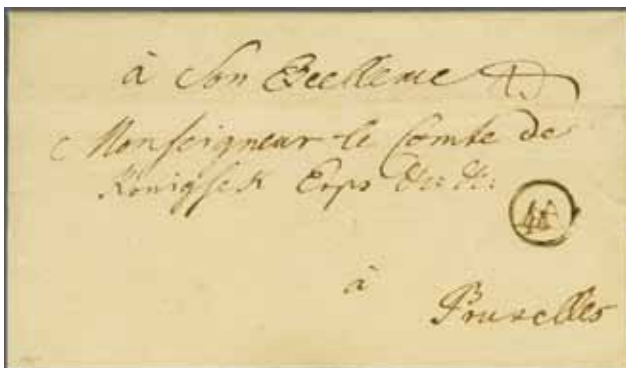 à Son Excellence
Monseigneur le Comte de
Königsek Erps
à
Bruxelles